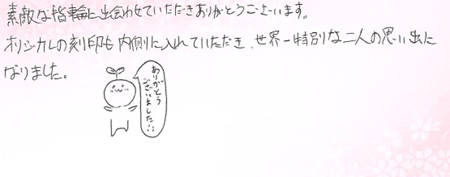 素敵な指輪に出会わせていただきありがとうございます。
オリジナルの刻印も内側に入れていただき、世界一特別な二人の思い出に
なりました。
ありがとう
ございました!!